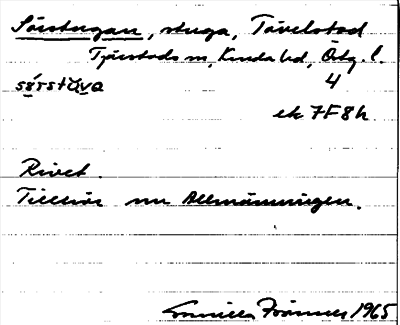 Sörstugan, stuga, Tävelstad
Tjärstads sn, Kinda hd, Ög. l.
sö̀rstùva 4
ek 7F8h
Rivet.
Tillhör nu Allmänningen.
Gunilla Frännes 1965